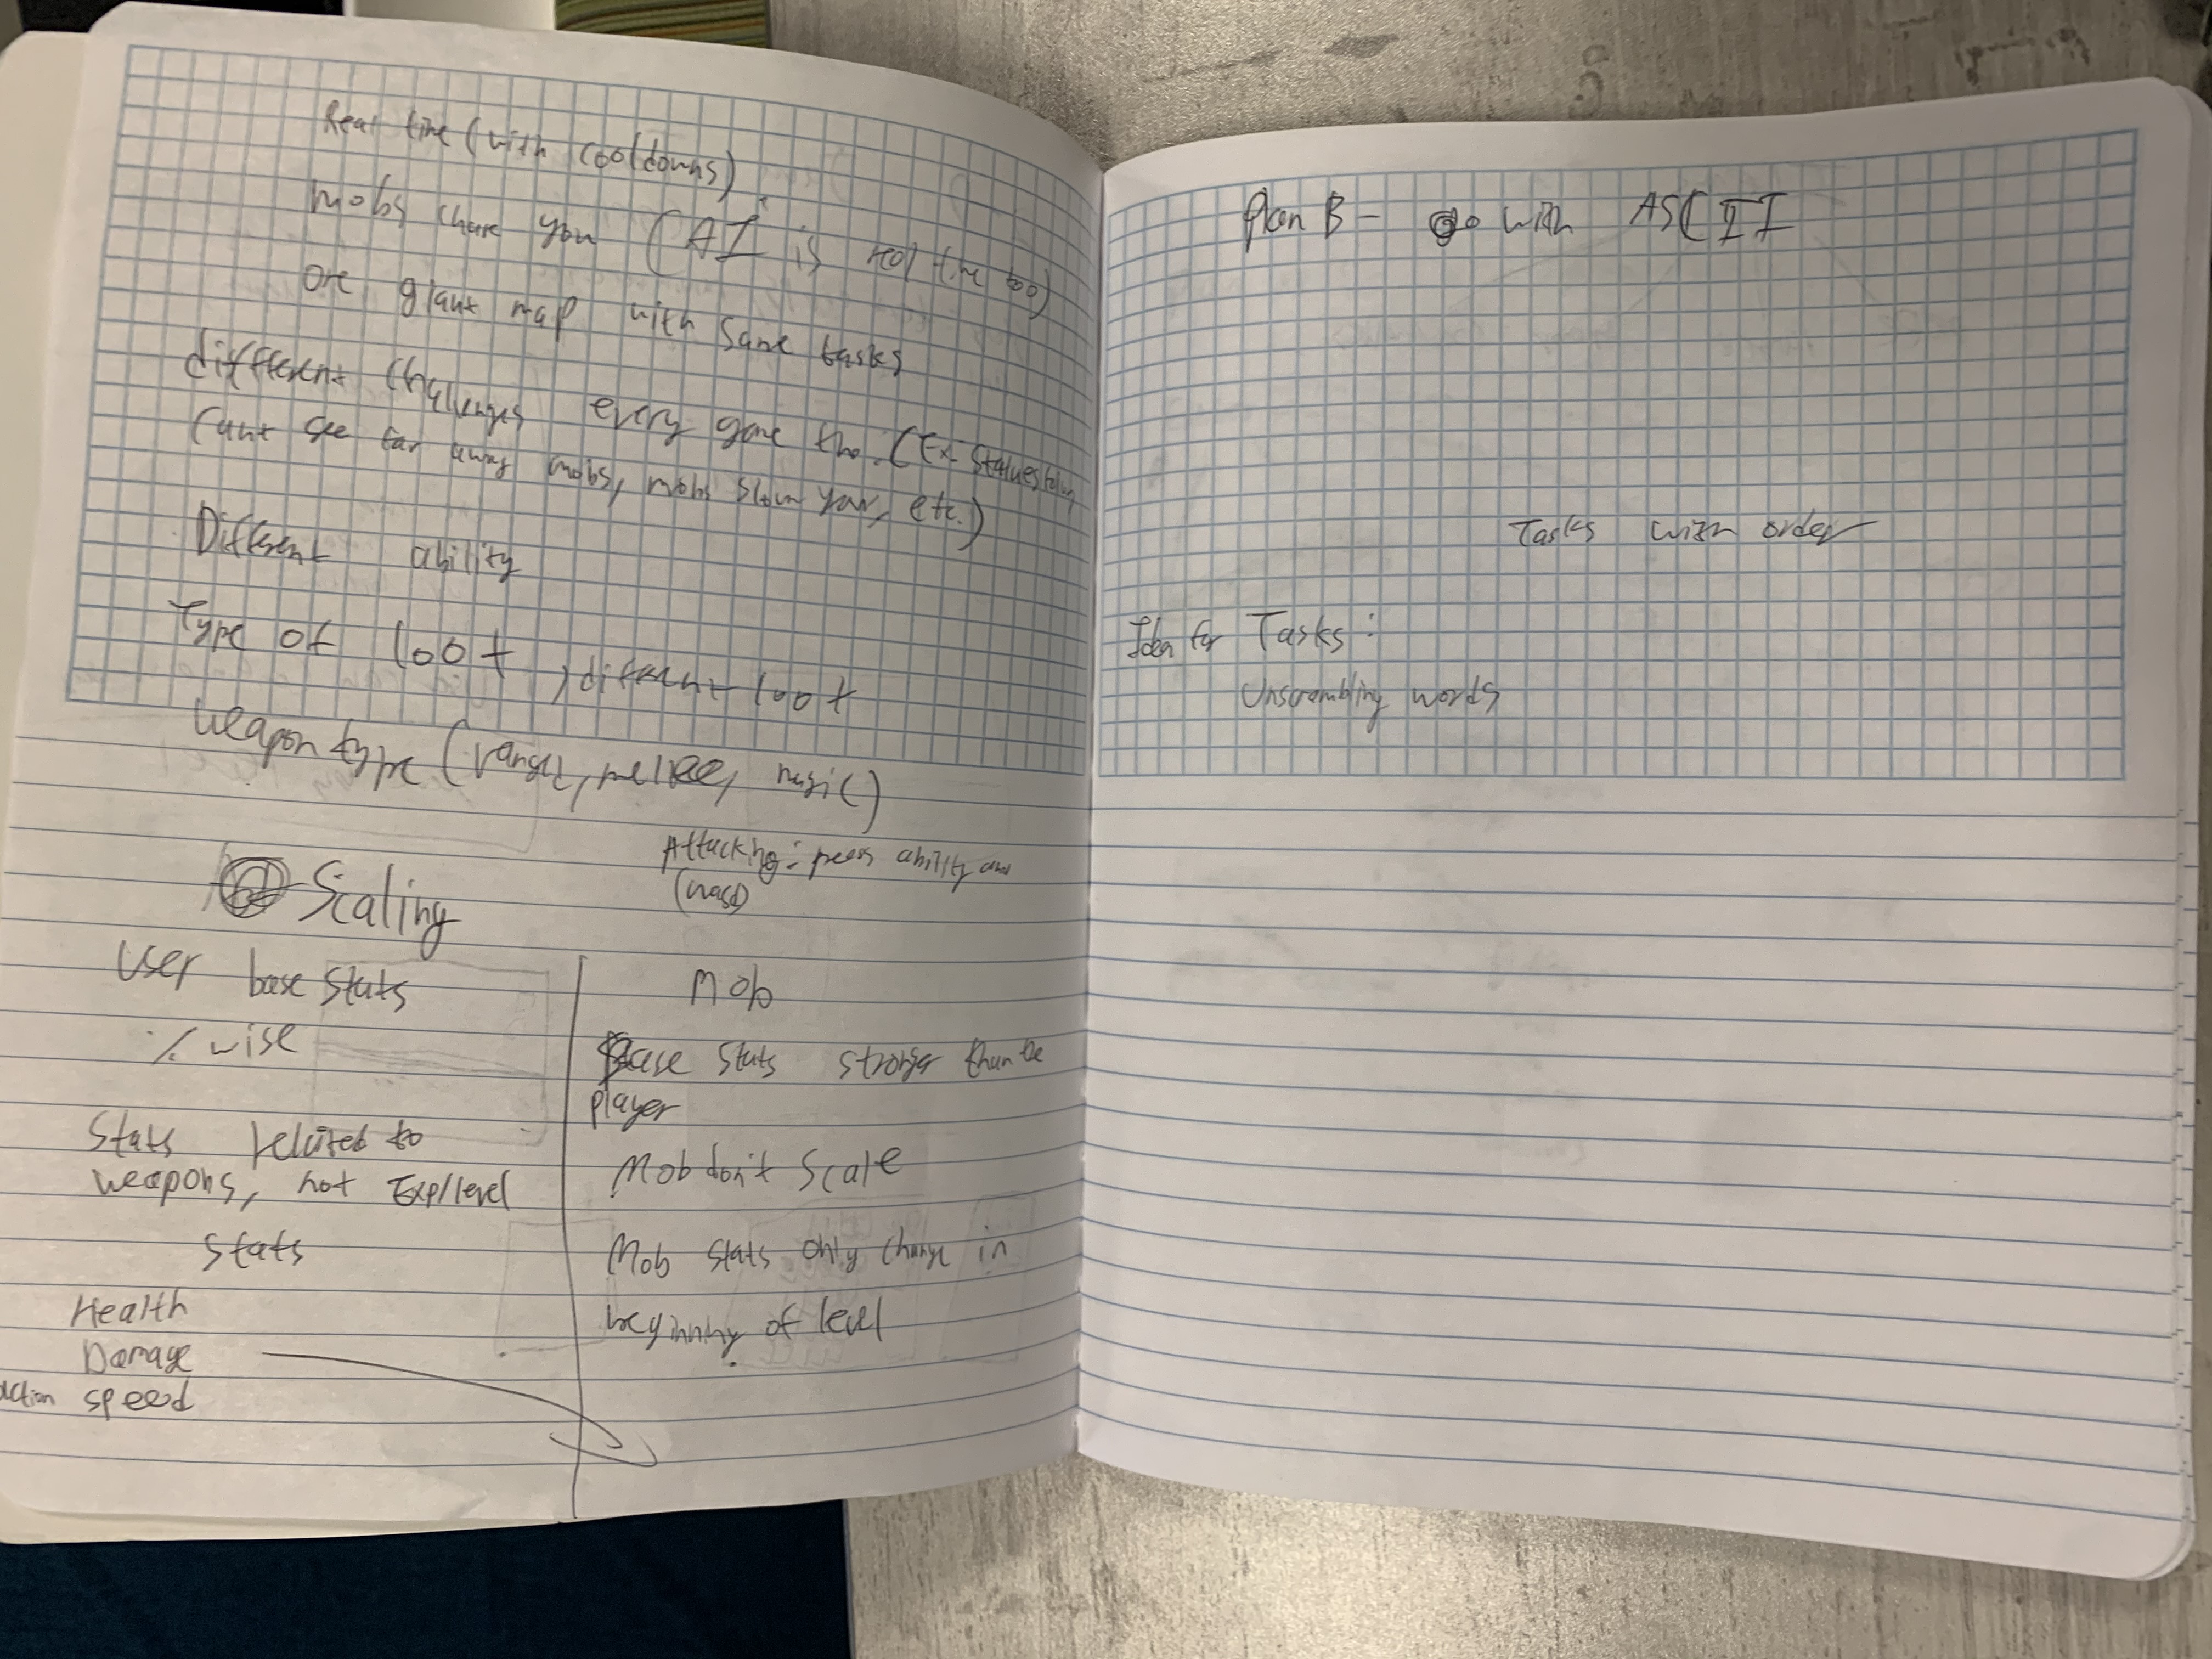 Real time (with cooldowns)
Mobs chase you (AI is real time too)
one giant map with same tasks
different challenges every game tho. (Ex- Statues
Cant see far away mobs, mobs slow you, etc.)
Different ability
Type of loot, different loot
weapon type (ranged, melee, magic)
Attacking: press ability and
(wasd)
Scaling
User base stats
% wise
Stats related to
weapons, not Exp/level
Stats
Health
Damage
action speed
Mob
Base stats stronger than the
player
Mob don't scale
Mob stats only change in
beginning of level
Plan B - go with ASCII
Tasks with order
Idea for Tasks:
Unscrambling words